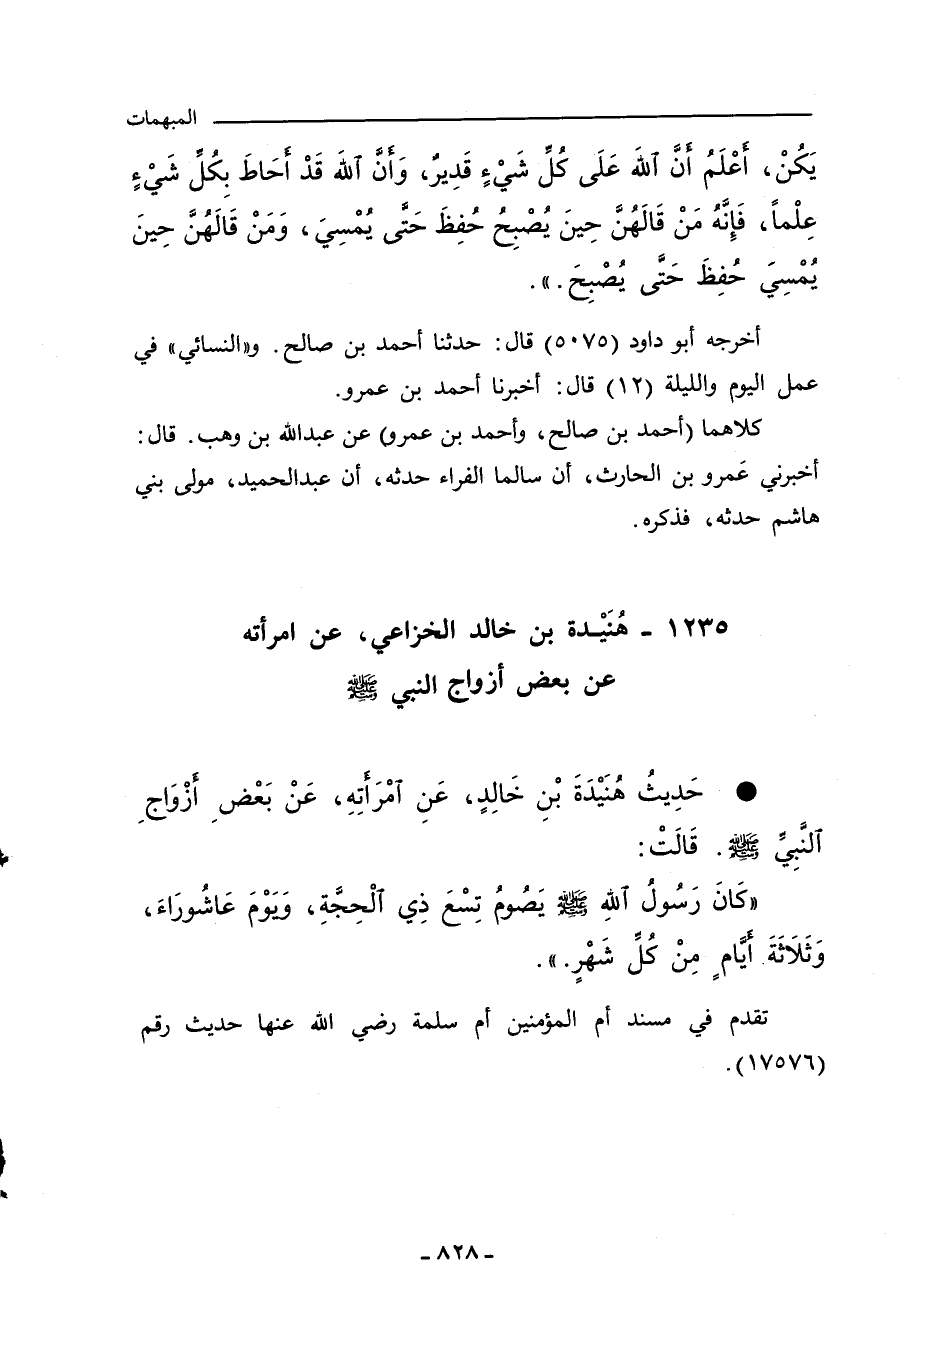 المبهمات
يَكُنْ، أَعْلَمُ أَنَّ ٱللهَ عَلَى كُلِّ شَيْءٍ قَدِيرٌ، وَأَنَّ ٱللهَ قَدْ أَحَاطَ بِكُلِّ شَيْءٍ
عِلْماً، فَإِنَّهُ مَنْ قَالَهُنَّ حِينَ يُصْبِحُ حُفِظَ حَتَّى يُمْسِيَ، وَمَنْ قَالَهُنَّ حِينَ
يُمْسِيَ حُفِظَ حَتَّى يُصْبِحَ.».
أخرجه أبو داود (٥٠٧٥) قال: حدثنا أحمد بن صالح. و«النسائي» في
عمل اليوم والليلة (١٢) قال: أخبرنا أحمد بن عمرو.
كلاهما (أحمد بن صالح، وأحمد بن عمرو) عن عبدالله بن وهب. قال:
أخبرني عَمرو بن الحارث، أن سالما الفراء حدثه، أن عبدالحميد، مولى بني
هاشم حدثه، فذكره.
١٢٣٥ - هُنَيْدة بن خالد الخزاعي، عن امرأته
عن بعض أزواج النبي ﷺ
● حَدِيثُ هُنَيْدَةَ بْنِ خَالِدٍ، عَنِ ٱمْرَأَتِهِ، عَنْ بَعْضِ أَزْوَاجِ
ٱلنَّبِيِّ ﷺ. قَالَتْ:
«كَانَ رَسُولُ ٱللهِ ﷺ يَصُومُ تِسْعَ ذِي ٱلْحِجَّةِ، وَيَوْمَ عَاشُورَاءَ،
وَثَلَاثَةَ أَيَّامٍ مِنْ كُلِّ شَهْرٍ.».
تقدم في مسند أم المؤمنين أم سلمة رضي الله عنها حديث رقم
(١٧٥٧٦).
- ٨٢٨ -